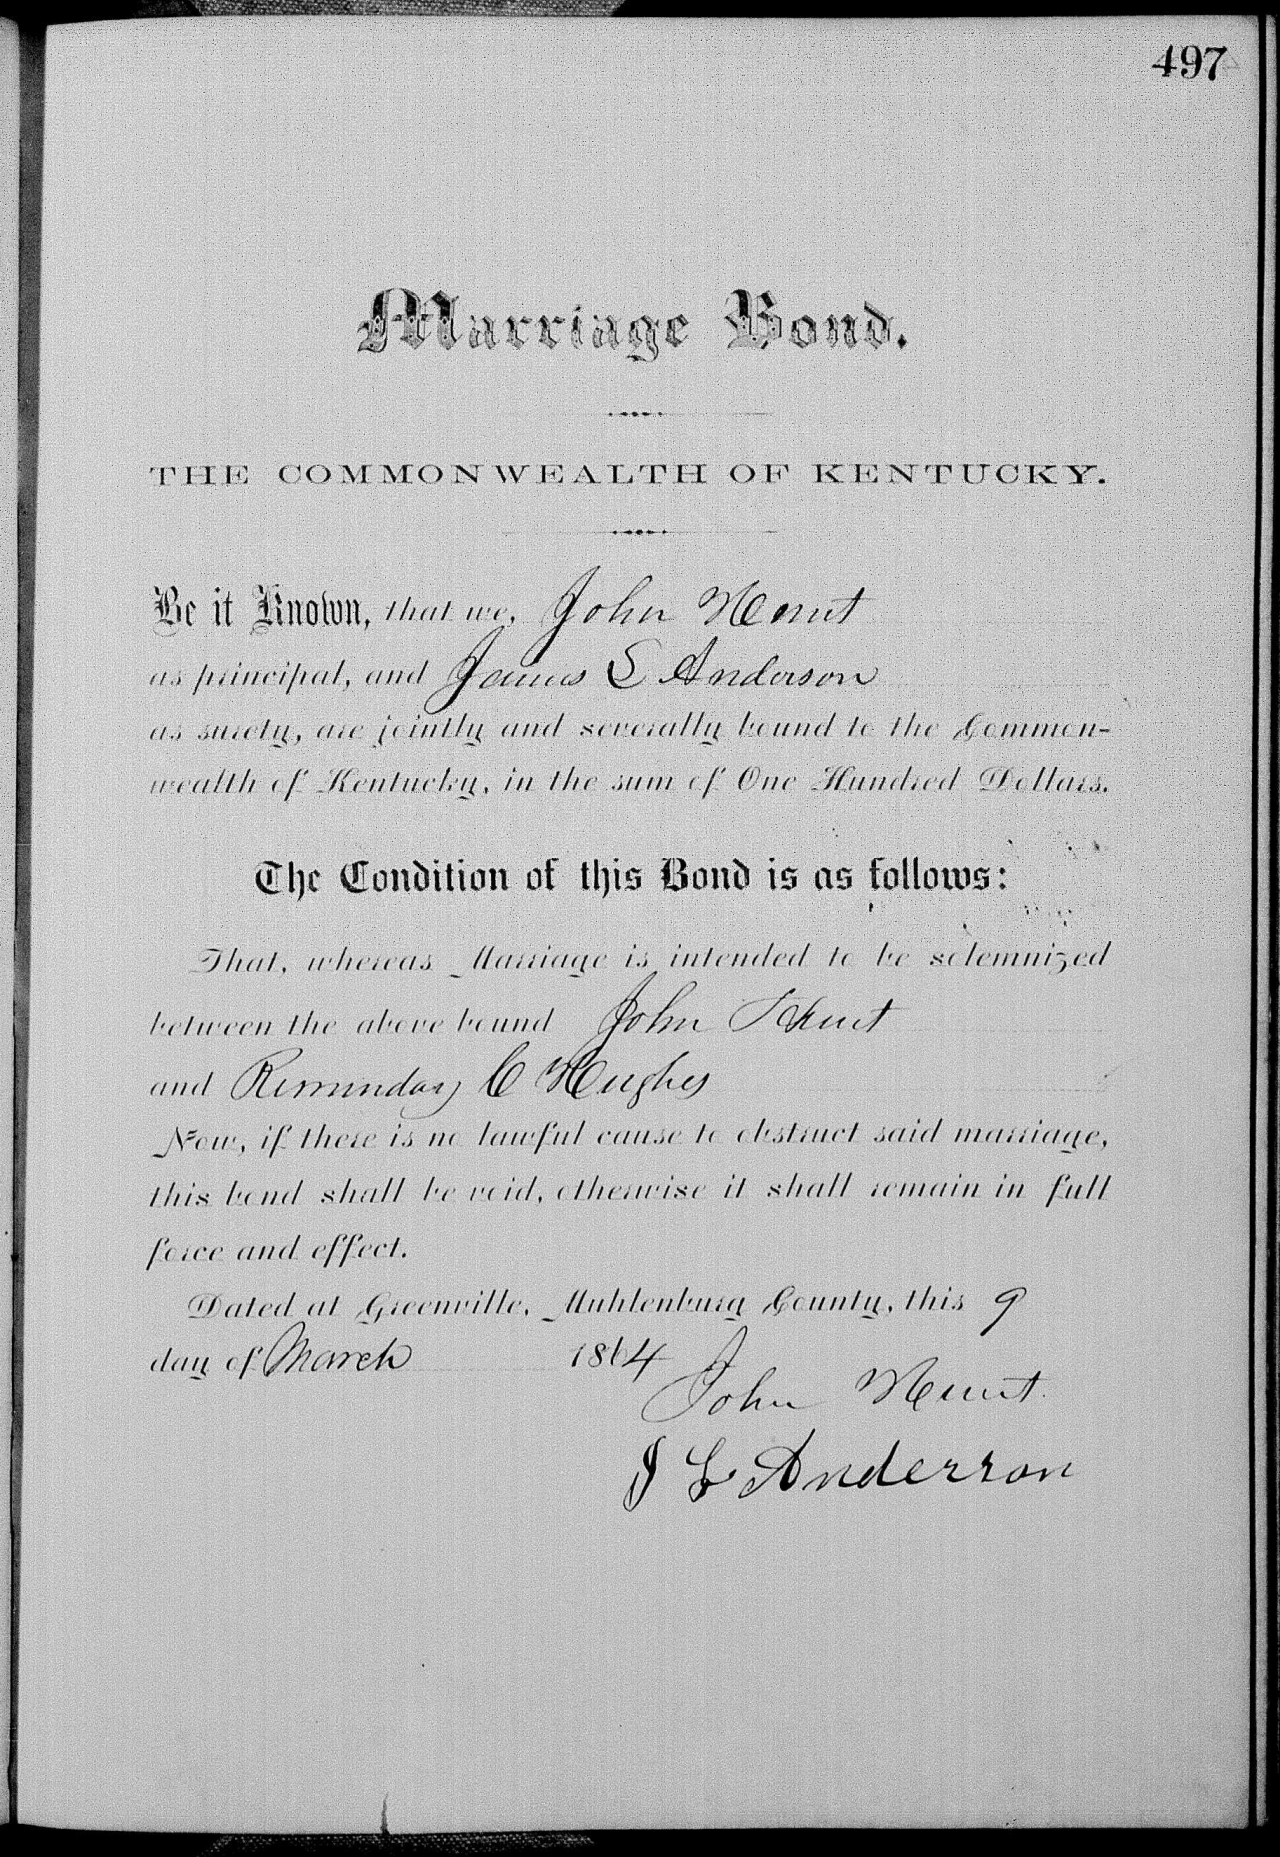 497
Marriage Bond.
THE COMMONWEALTH OF KENTUCKY.
Be it Known, that we, John Hunt
as principal, and James L Anderson
as surety, are jointly and severally bound to the Common-
wealth of Kentucky, in the sum of One Hundred Dollars.
The Condition of this Bond is as follows:
That, whereas Marriage is intended to be solemnized
between the above bound John Hunt
and C Hughes
Now, if there is no lawful cause to obstruct said marriage,
this bond shall be void, otherwise it shall remain in full
force and effect.
Dated at Greenville, Muhlenburg County, this 9
day of March 1864
John Hunt
J L Anderson